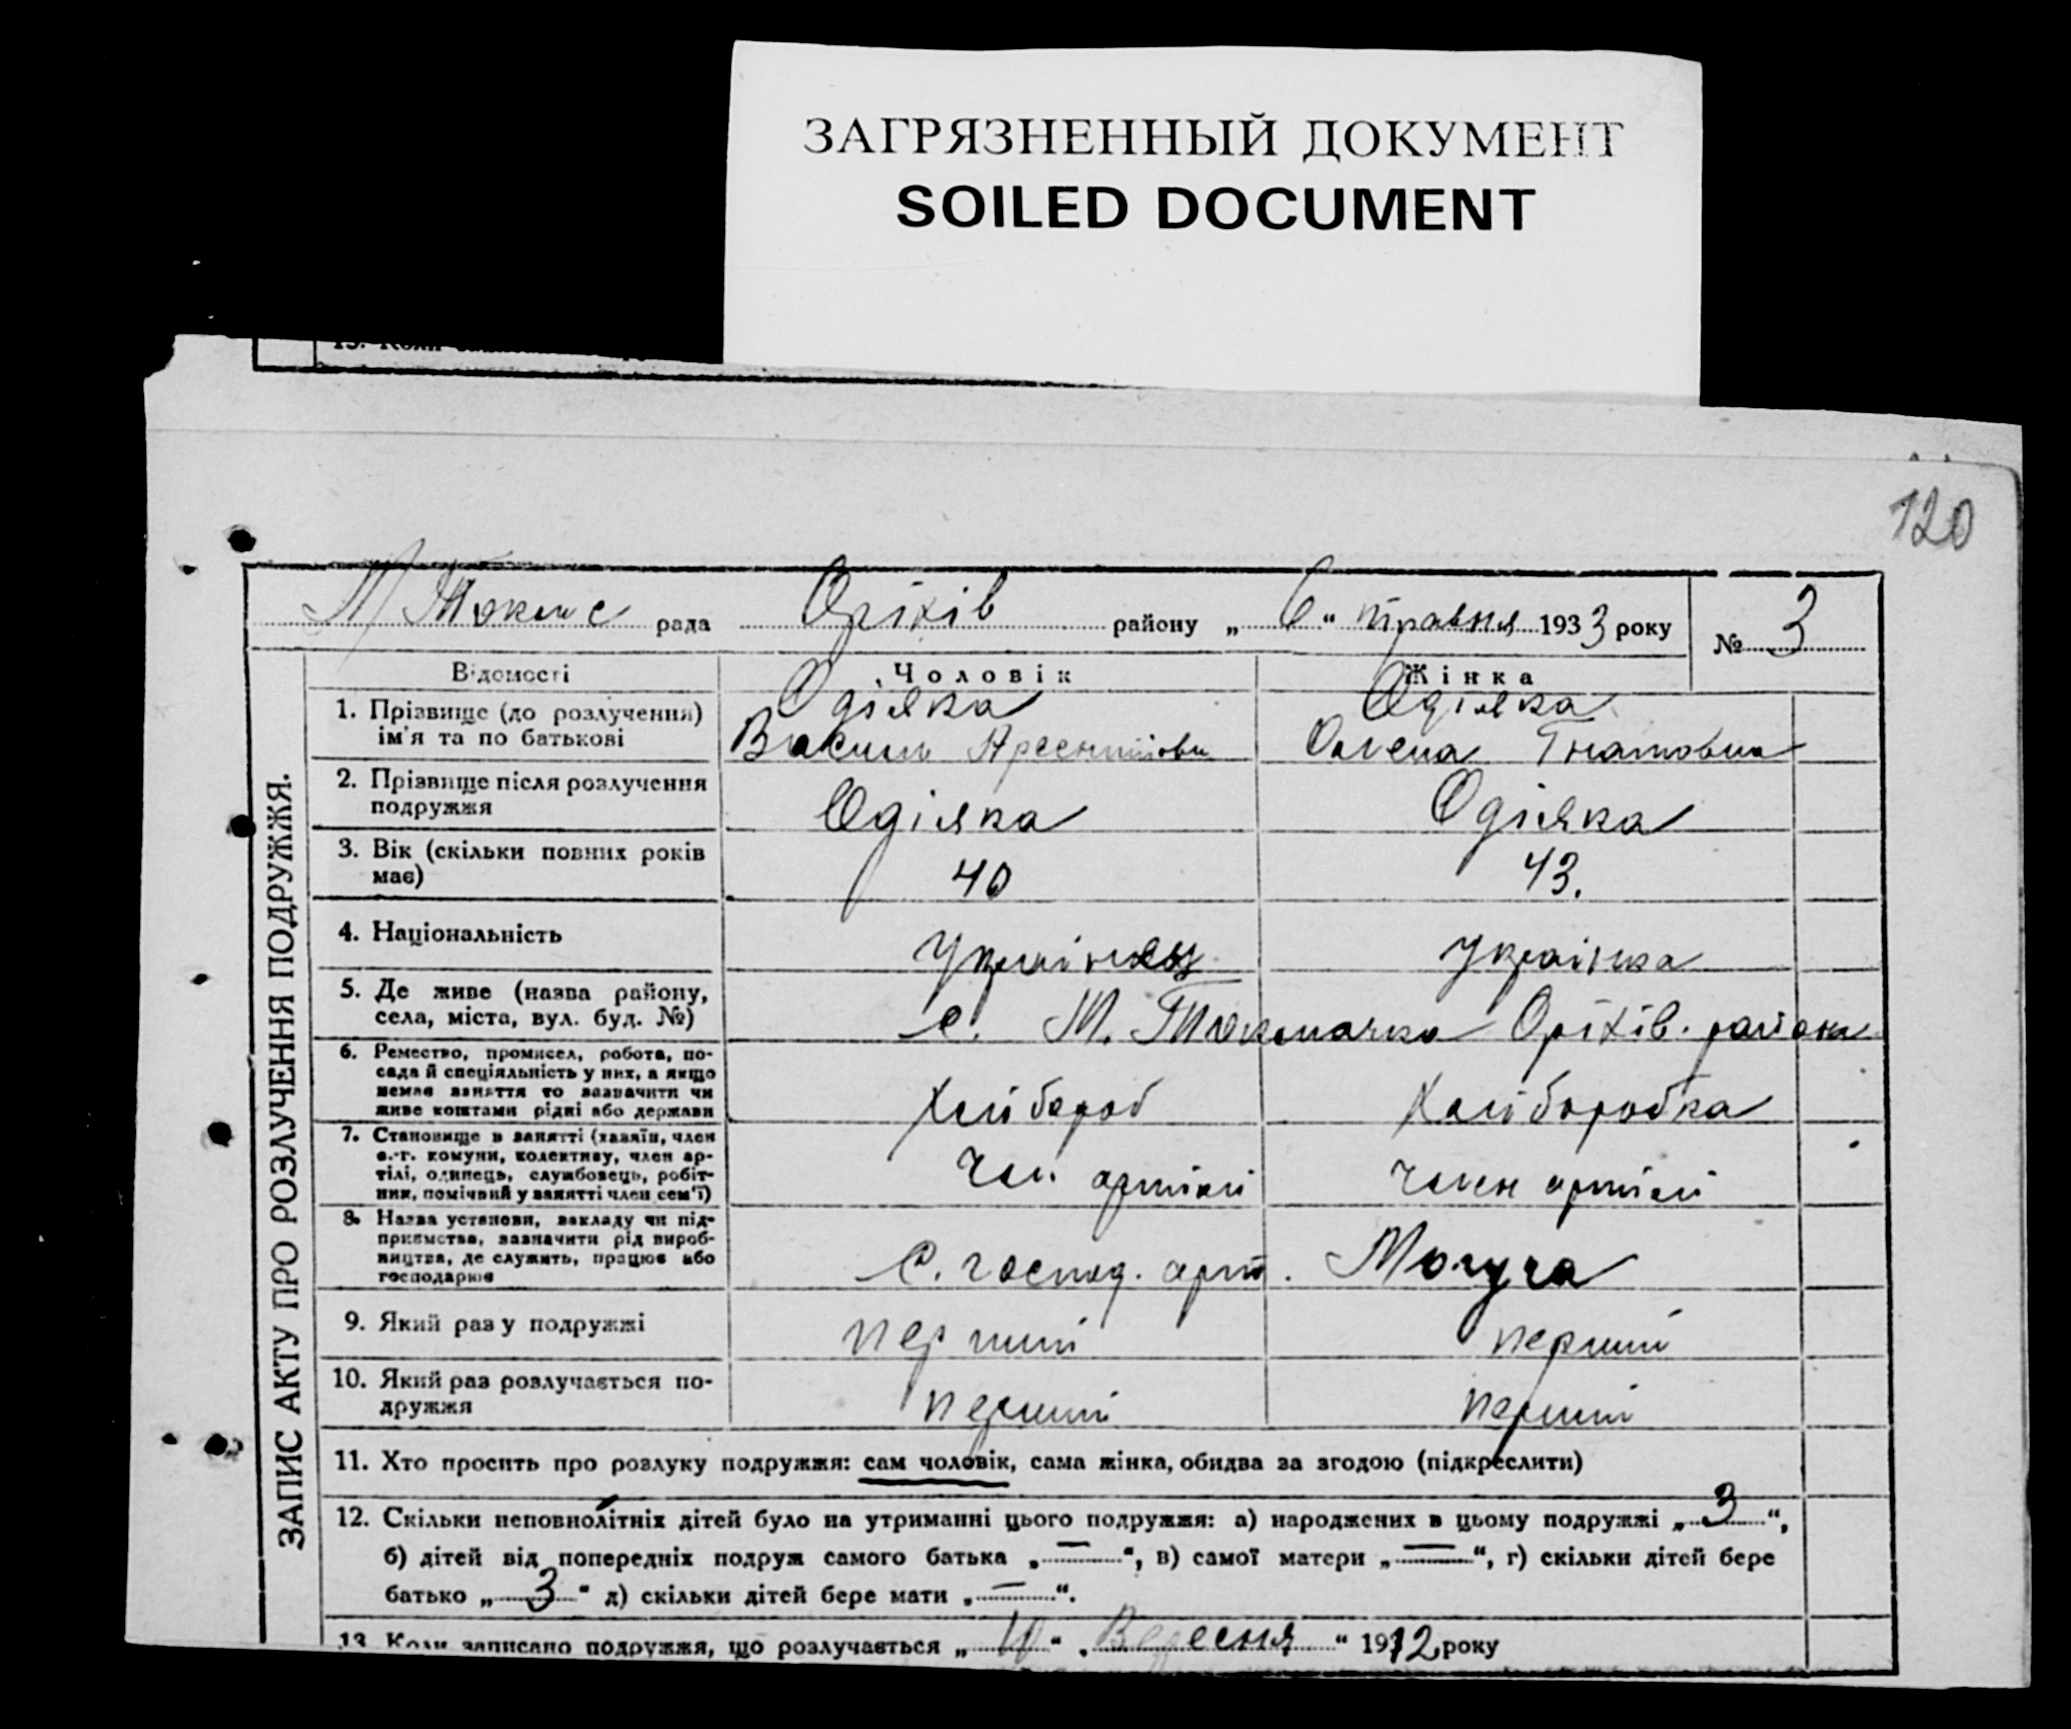 ЗАГРЯЗНЕННЫЙ ДОКУМЕНТ
SOILED DOCUMENT
120
М Токмс рада Оріхів району „ 6 “ травня 1933 року № 3
ЗАПИС АКТУ ПРО РОЗЛУЧЕННЯ ПОДРУЖЖЯ.
Відомості Чоловік Жінка
1. Прізвище (до розлучення) Одіяка Одіяка
ім'я та по батькові Василь Олена Гнатовна
2. Прізвище після розлучення
подружжя Одіяка Одіяка
3. Вік (скільки повних років
має) 40 43.
4. Національність Українець Українка
5. Де живе (назва району,
села, міста, вул. буд. №) с. М. Токмачка Оріхів. району
6. Ремество, промисел, робота, по-
сада й спеціяльність у них, а якщо
немає заняття то зазначити чи
живе коштами рідні або держави Хлібороб Хліборобка
7. Становище в занятті (хазяїн, член
с.-г. комуни, колективу, член ар-
тілі, одинець, службовець, робіт-
ник, помічний у занятті член сем'ї) Чл. артілі Член артілі
8. Назва установи, закладу чи під-
приємства, зазначити рід вироб-
ництва, де служить, працює або
господарює С. господ. арт. Могуча
9. Який раз у подружжі перший перший
10. Який раз розлучається по-
дружжя перший перший
11. Хто просить про розлуку подружжя: сам чоловік, сама жінка, обидва за згодою (підкреслити)
12. Скільки неповнолітніх дітей було на утриманні цього подружжя: а) народжених в цьому подружжі „ 3 “,
б) дітей від попередніх подруж самого батька „ — “, в) самої матери „ — “, г) скільки дітей бере
батько „ 3 “ д) скільки дітей бере мати „ — “.
13. Коли записано подружжя, що розлучається „ 10 “ „ Вересня “ 1912 року